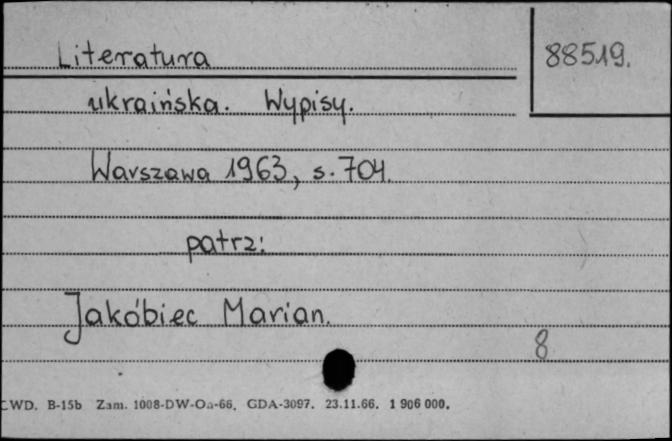 Literatura 88519.
ukraińska. Wypisy.
Warszawa 1963, s. 704.
patrz:
Jakóbiec Marian.
8
CWD. B-15b Zam. 1008-DW-Oa-66. GDA-3097. 23.11.66. 1 906 000.